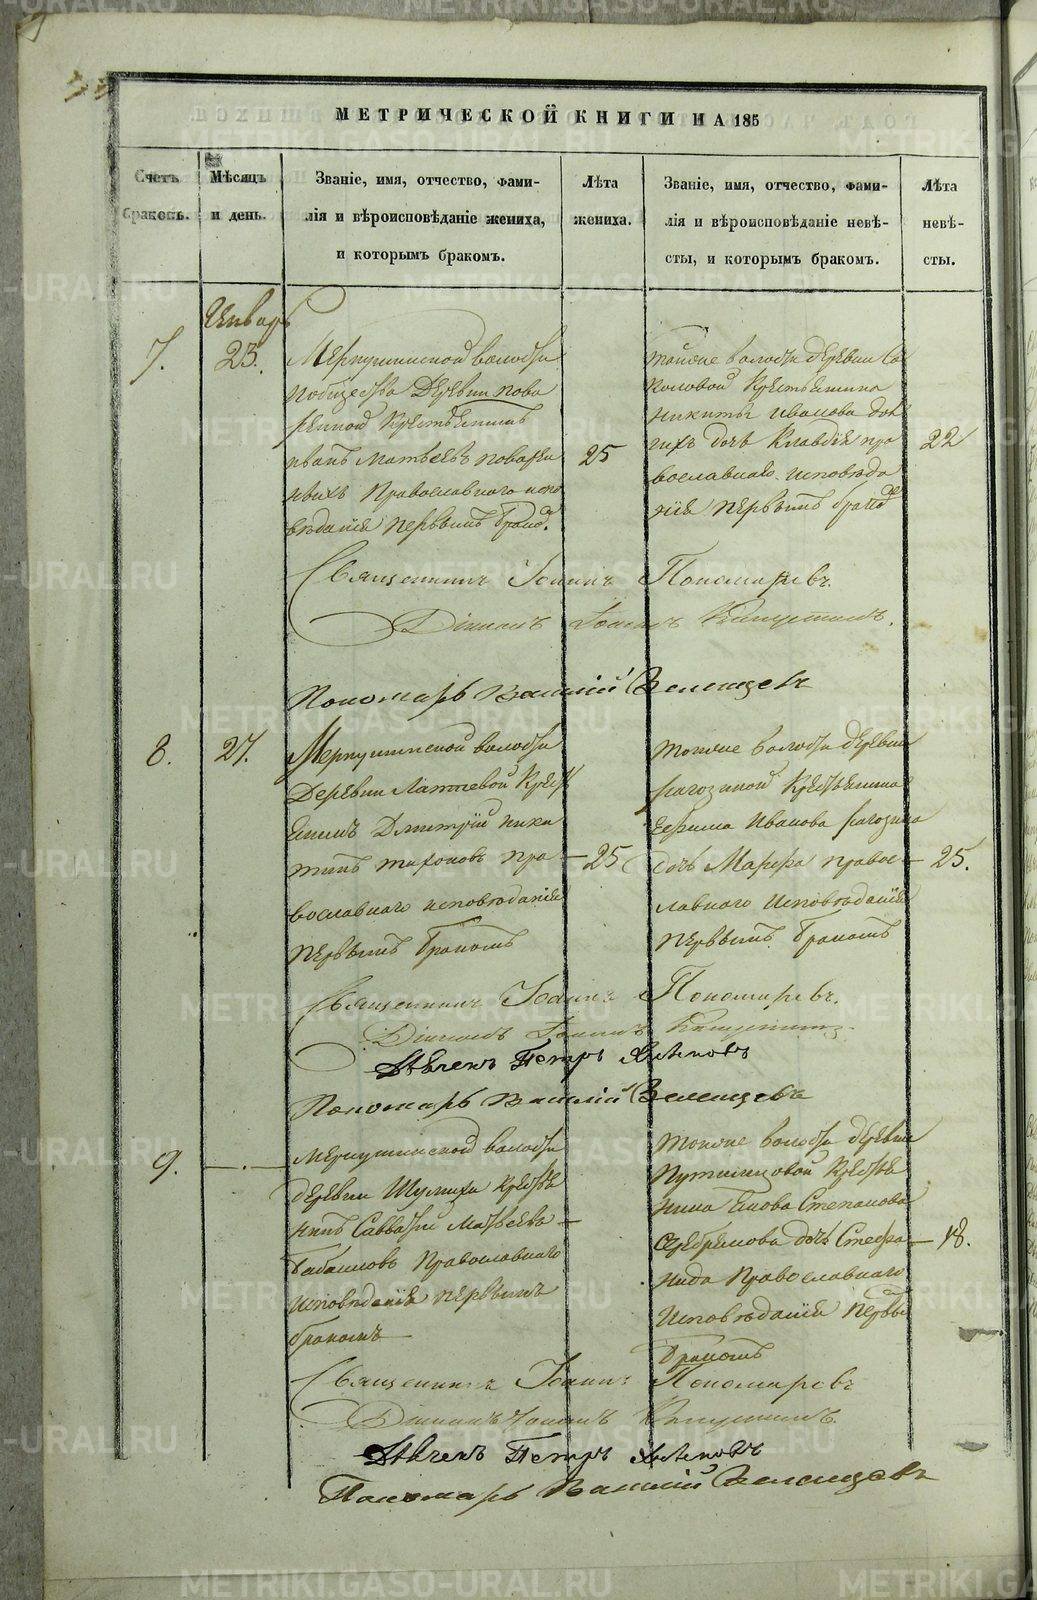 МЕТРИЧЕСКОЙ КНИГИ НА 185
Счетъ браковъ.
Мѣсяцъ и день.
Званіе, имя, отчество, фами-
лія и вѣроисповѣданіе жениха,
и которымъ бракомъ.
Лѣта
жениха.
Званіе, имя, отчество, фами-
лія и вѣроисповѣданіе невѣ-
сты, и которымъ бракомъ.
Лѣта
невѣ-
сты.
Январь
7.
23.
Меркушинской волости
деревни Пова
ренной Крестьянинъ
Иванъ Матвеевъ Поварен
ныхъ Православнаго испо
вѣданія первымъ брако.
25
тойже волости деревни Со
коловой Крестьянина
Никиты Иванова
дочь Клавдія пра
вославнаго исповѣда
нія первымъ брако
22
Священникъ Іоаннъ Пономаревъ.
Діаконъ Іоаннъ Капустинъ.
Пономарь Василій Зеленцевъ
8.
27.
Меркушинской волости
Деревни Лаптевой Крест
янинъ Дмитрій Ники
тинъ Тихоновъ пра
вославнаго исповѣданія
первымъ бракомъ
25
тойже волости деревни
Рагозиной Крестьянина
Ефима Иванова Рагозина
дочь Марфа правос
лавнаго исповѣданія
первымъ бракомъ
25.
Священникъ Іоаннъ Пономаревъ.
Діаконъ Іоаннъ Капустинъ
Дьячекъ Петръ
Пономарь Василій Зеленцевъ
9.
Меркушинской волости
деревни Шумихи Крестья
нинъ Савватій Матвеевъ
Православнаго
исповѣданія первымъ
бракомъ
тойже волости деревни
Путимцовой Крестья
нина Степанова
дочь Стефа
нида Православнаго
исповѣданія первы
бракомъ
18.
Священникъ Іоаннъ Пономаревъ
Діаконъ Іоаннъ Капустинъ.
Дьячекъ Петръ
Пономарь Василій Зеленцевъ
METRIKI.GASO-URAL.RU